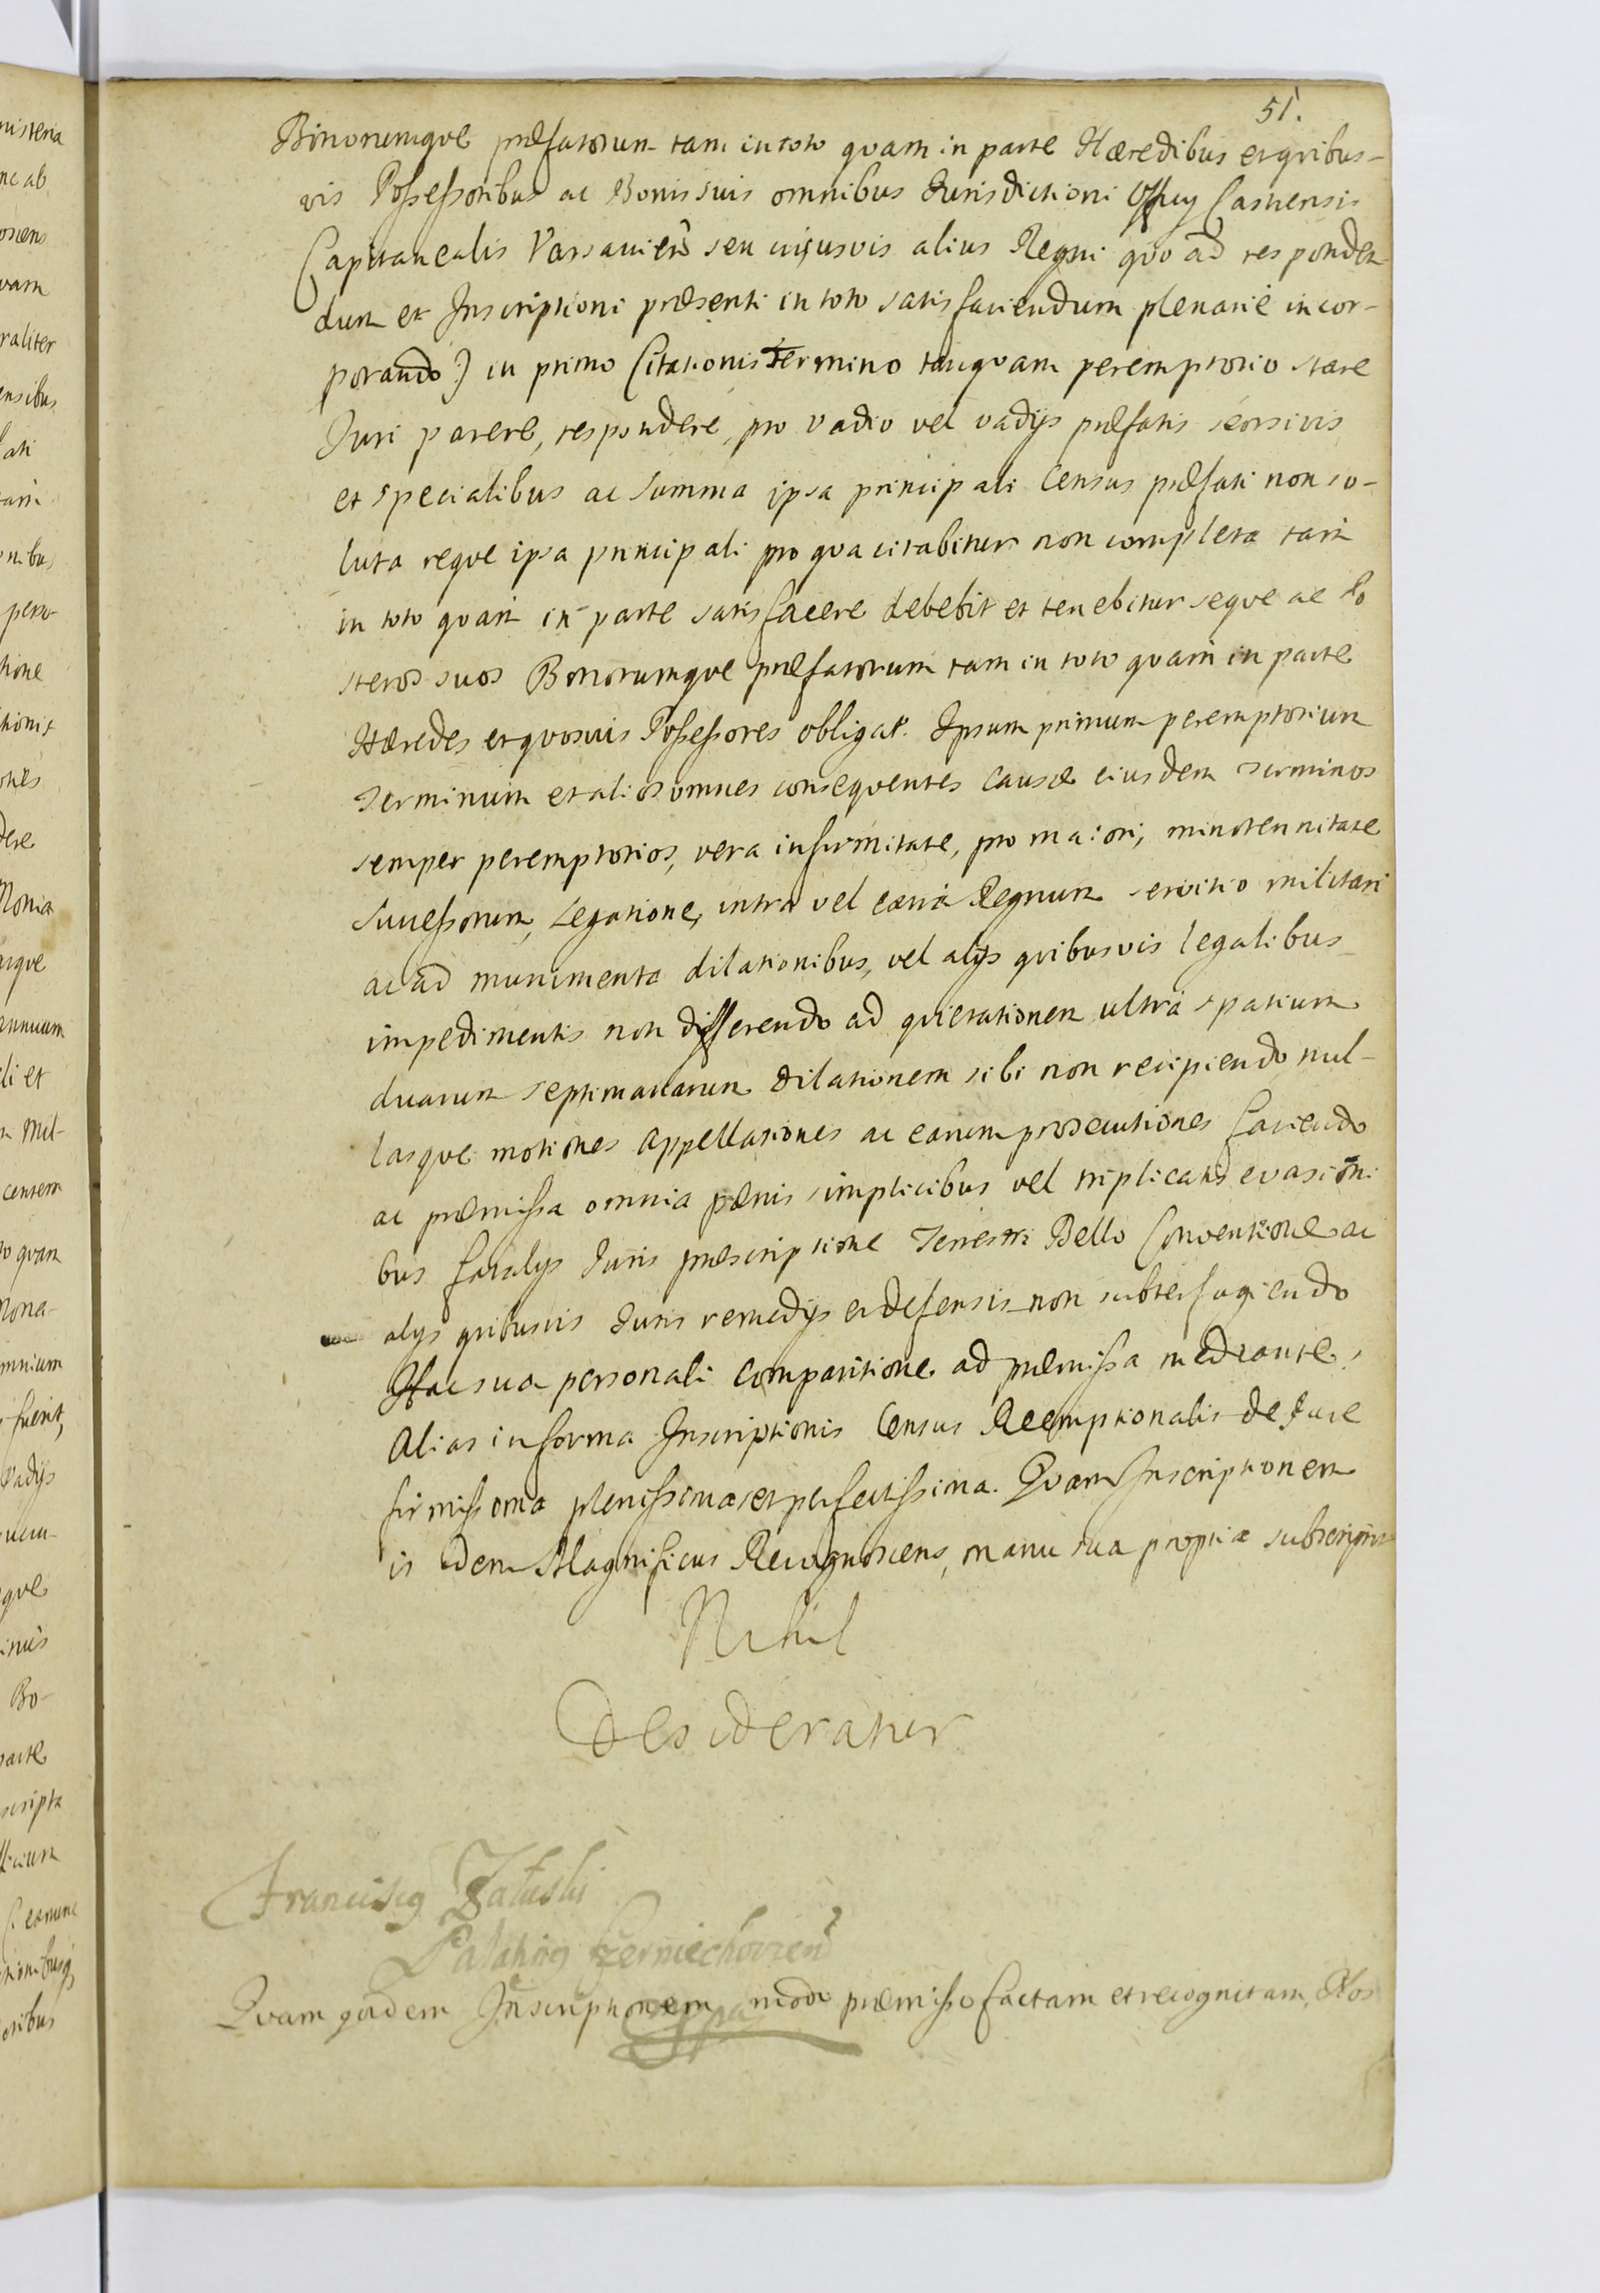 51.
Bonorumqve præfatorum tam in toto qvam in parte Hæredibus et qvibus-
vis Possessoribus ac Bonis suis omnibus Jurisdictioni Officij Castrensis
Capitanealis Varsavien seu cujusvis alius Regni qvo ad responden
dum et Inscriptioni præsenti in toto satisfaciendum plenariè incor-
porando :) in primo Citationis Termino tanqvam peremptorio stare
Juri parere, respondere, pro vadio vel vadijs præfatis seorsivis
et specialibus ac summa ipsa principali Census præfati non so-
luta reqve ipsa principali pro qva citabitur non completa tam
in toto qvam in parte satisfacere debebit et tenebitur seqve ac Po
steros suos Bonorumqve præfatorum tam in toto qvam in parte
Hæredes et qvosvis Possessores obligat. Ipsum primum peremptorium
Terminum et alios omnes conseqventes causæ eiusdem Terminos
semper peremptorios, vera infirmitate, pro maiori, minorennitate
Successorum, Legatione, intra vel extra Regnum servitio militari
ac ad munimenta dilationibus, vel alijs qvibusvis legalibus
impedimentis non differendo ad qvietationem ultra spatium
duarum septimanarum dilationem sibi non recipiendo nul-
lasqve motiones appellationes ac earum prosecutiones faciendo
ac præmissa omnia pænis simplicibus vel triplicatis evasioni
bus fatalijs Juris præscriptione Terrestri Bello Conventione ac
alijs qvibusvis Juris remedijs et defensis non subterfugiendo
Hac sua personali comparitione ad præmissa mediante.
Alias in forma Inscriptionis Census Reemptionalis de Jure
firmissima plenissima et perfectissima. Qvam Inscriptionem
is dem Magnificus Recognoscens, manu sua propria subscripsit
Nihil
Desideratur
Franciscg Załuski
Palating Czerniechovien
Qvam qvidem Inscriptionem modo præmisso factam et recognitam, Nos
mppa